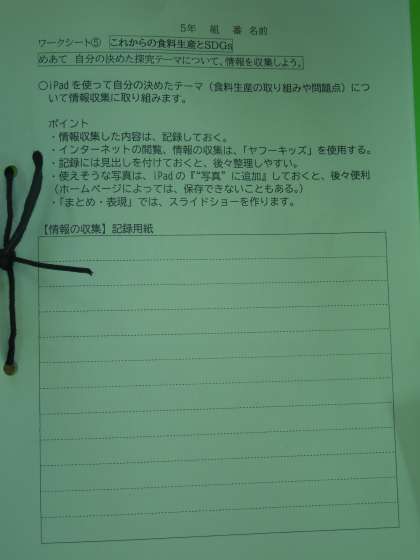 5年 組 番 名前
ワークシート⑤ これからの食料生産とSDGs
めあて 自分の決めた探究テーマについて、情報を収集しよう。
○iPadを使って自分の決めたテーマ（食料生産の取り組みや問題点）につ
いて情報収集に取り組みます。
ポイント
・情報収集した内容は、記録しておく。
・インターネットの閲覧、情報の収集は、「ヤフーキッズ」を使用する。
・記録には見出しを付けておくと、後々整理しやすい。
・使えそうな写真は、iPadの『“写真”に追加』しておくと、後々便利
（ホームページによっては、保存できないこともある。）
・「まとめ・表現」では、スライドショーを作ります。
【情報の収集】記録用紙